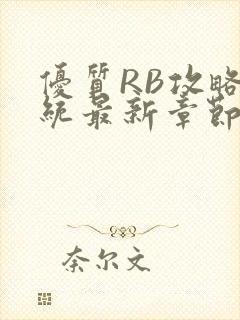 優質RB攻略
統最新章節
奈尔文